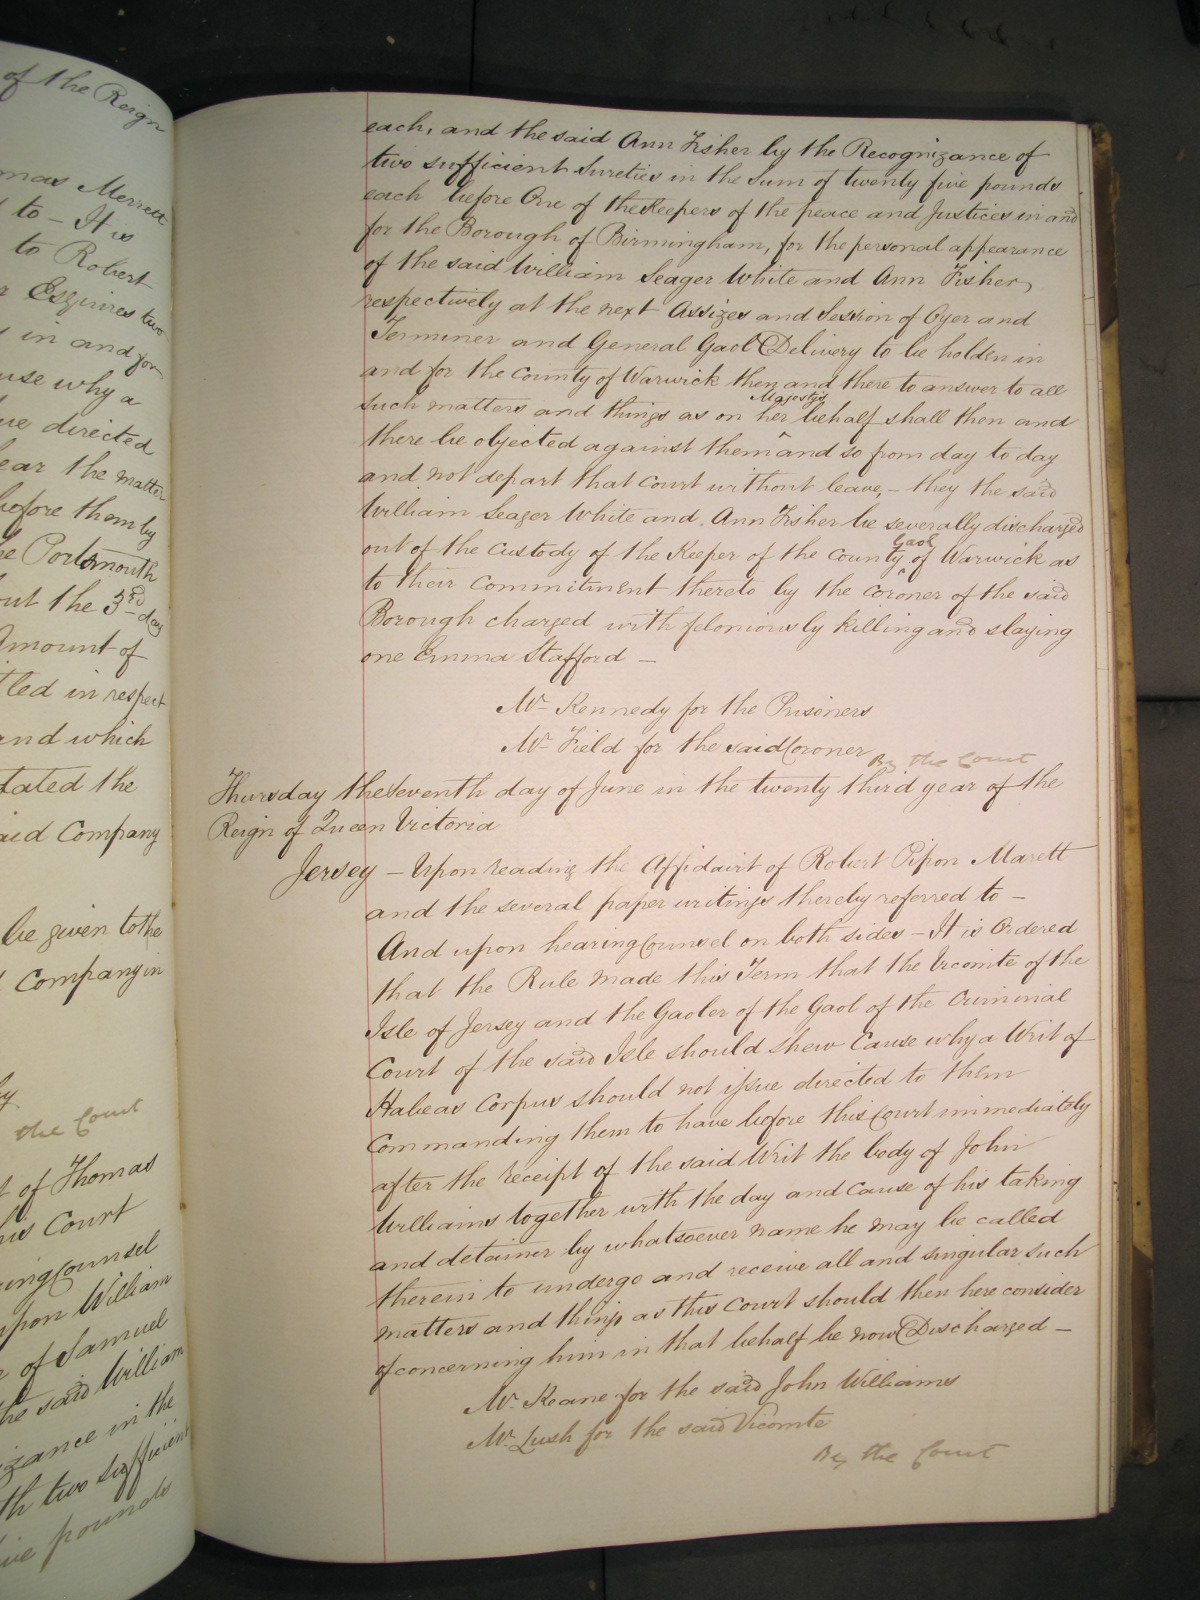 of the Reign
mas Merrett
to - It is
to Robert
r Esquires two
in and for
use why a
ue directed
ear the matter
before them by
he Portsmouth
out the 3rd day
Amount of
tled in respect
and which
tated the
aid Company
be given to the
Company in
the Court
t of Thomas
his Court
ring Counsel
upon William
e of Samuel
he said William
izance in the
th two sufficient
ive pounds
each, and the said Ann Fisher by the Recognizance of
two sufficient Sureties in the Sum of twenty five pounds
each before One of the Keepers of the peace and Justices in and
for the Borough of Birmingham, for the personal appearance
of the said William Seager White and Ann Fisher,
respectively at the next Assizes and Session of Oyer and
Terminer and General Gaol Delivery to be holden in
and for the County of Warwick then and there to answer to all
such matters and things as on her Majestys behalf shall then and
there be objected against them and so from day to day
and not depart that Court without leave, - they the said
William Seager White and Ann Fisher be severally discharged
out of the Custody of the Keeper of the County Gaol of Warwick as
to their Commitment thereto by the Coroner of the said
Borough charged with feloniously killing and slaying
one Emma Stafford -
Mr Kennedy for the Prisoners
Mr Field for the said Coroner
By the Court
Thursday the Seventh day of June in the twenty third year of the
Reign of Queen Victoria
Jersey - Upon reading the Affidavit of Robert Pipon Marett
and the several paper writings thereby referred to -
And upon hearing Counsel on both sides - It is Ordered
that the Rule made this Term that the Vicomte of the
Isle of Jersey and the Gaoler of the Gaol of the Criminal
Court of the said Isle should shew Cause why a Writ of
Habeas Corpus should not issue directed to them
Commanding them to have before this Court immediately
after the receipt of the said Writ the body of John
Williams together with the day and cause of his taking
and detainer by whatsoever name he may be called
therein to undergo and receive all and singular such
matters and things as this Court should then here consider
of concerning him in that behalf be now Discharged -
Mr. Keane for the said John Williams
Mr. Lush for the said Vicomte
By the Court